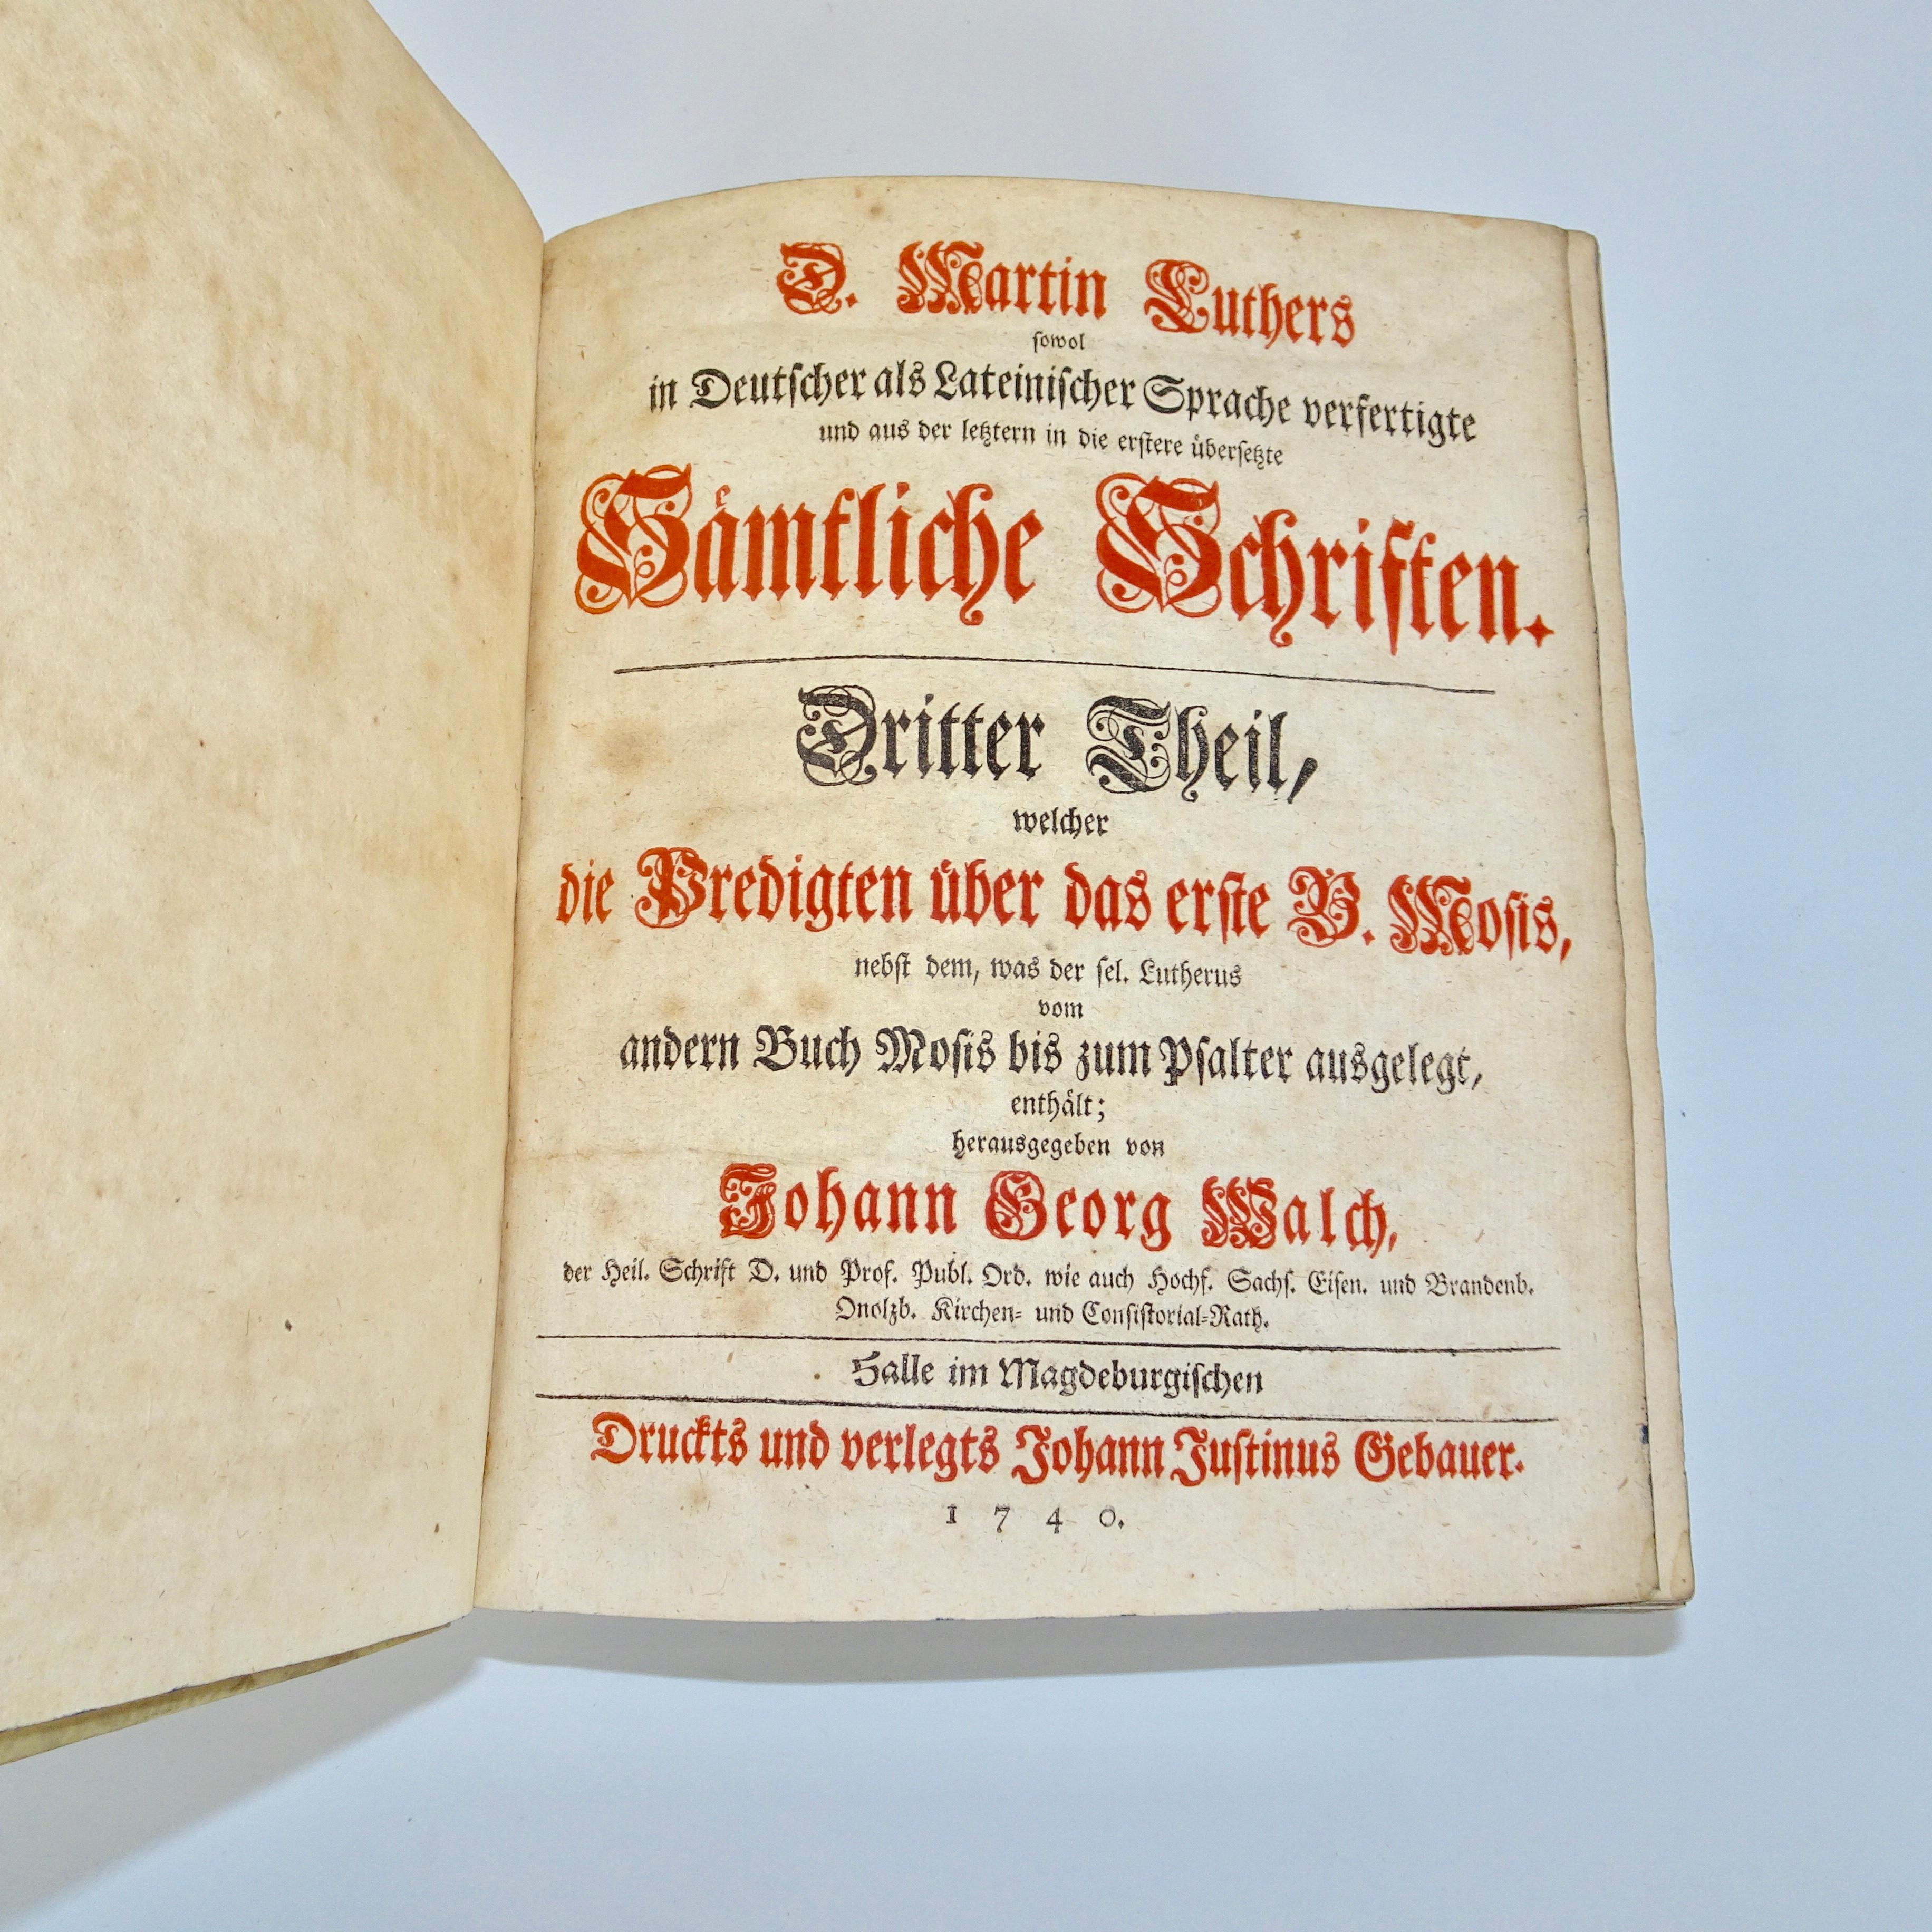 D. Martin Luthers
sowol
in Deutscher als Lateinischer Sprache verfertigte
und aus der letztern in die erstere übersetzte
Sämtliche Schriften.
Dritter Theil,
welcher
die Predigten über das erste B. Mosis,
nebst dem, was der sel. Lutherus
vom
andern Buch Mosis bis zum Psalter ausgelegt,
enthält;
herausgegeben von
Johann Georg Walch,
der Heil. Schrift D. und Prof. Publ. Ord. wie auch Hochf. Sachs. Eisen. und Brandenb.
Onolzb. Kirchen- und Consistorial-Rath.
Halle im Magdeburgischen
Druckts und verlegts Johann Justinus Gebauer.
1740.